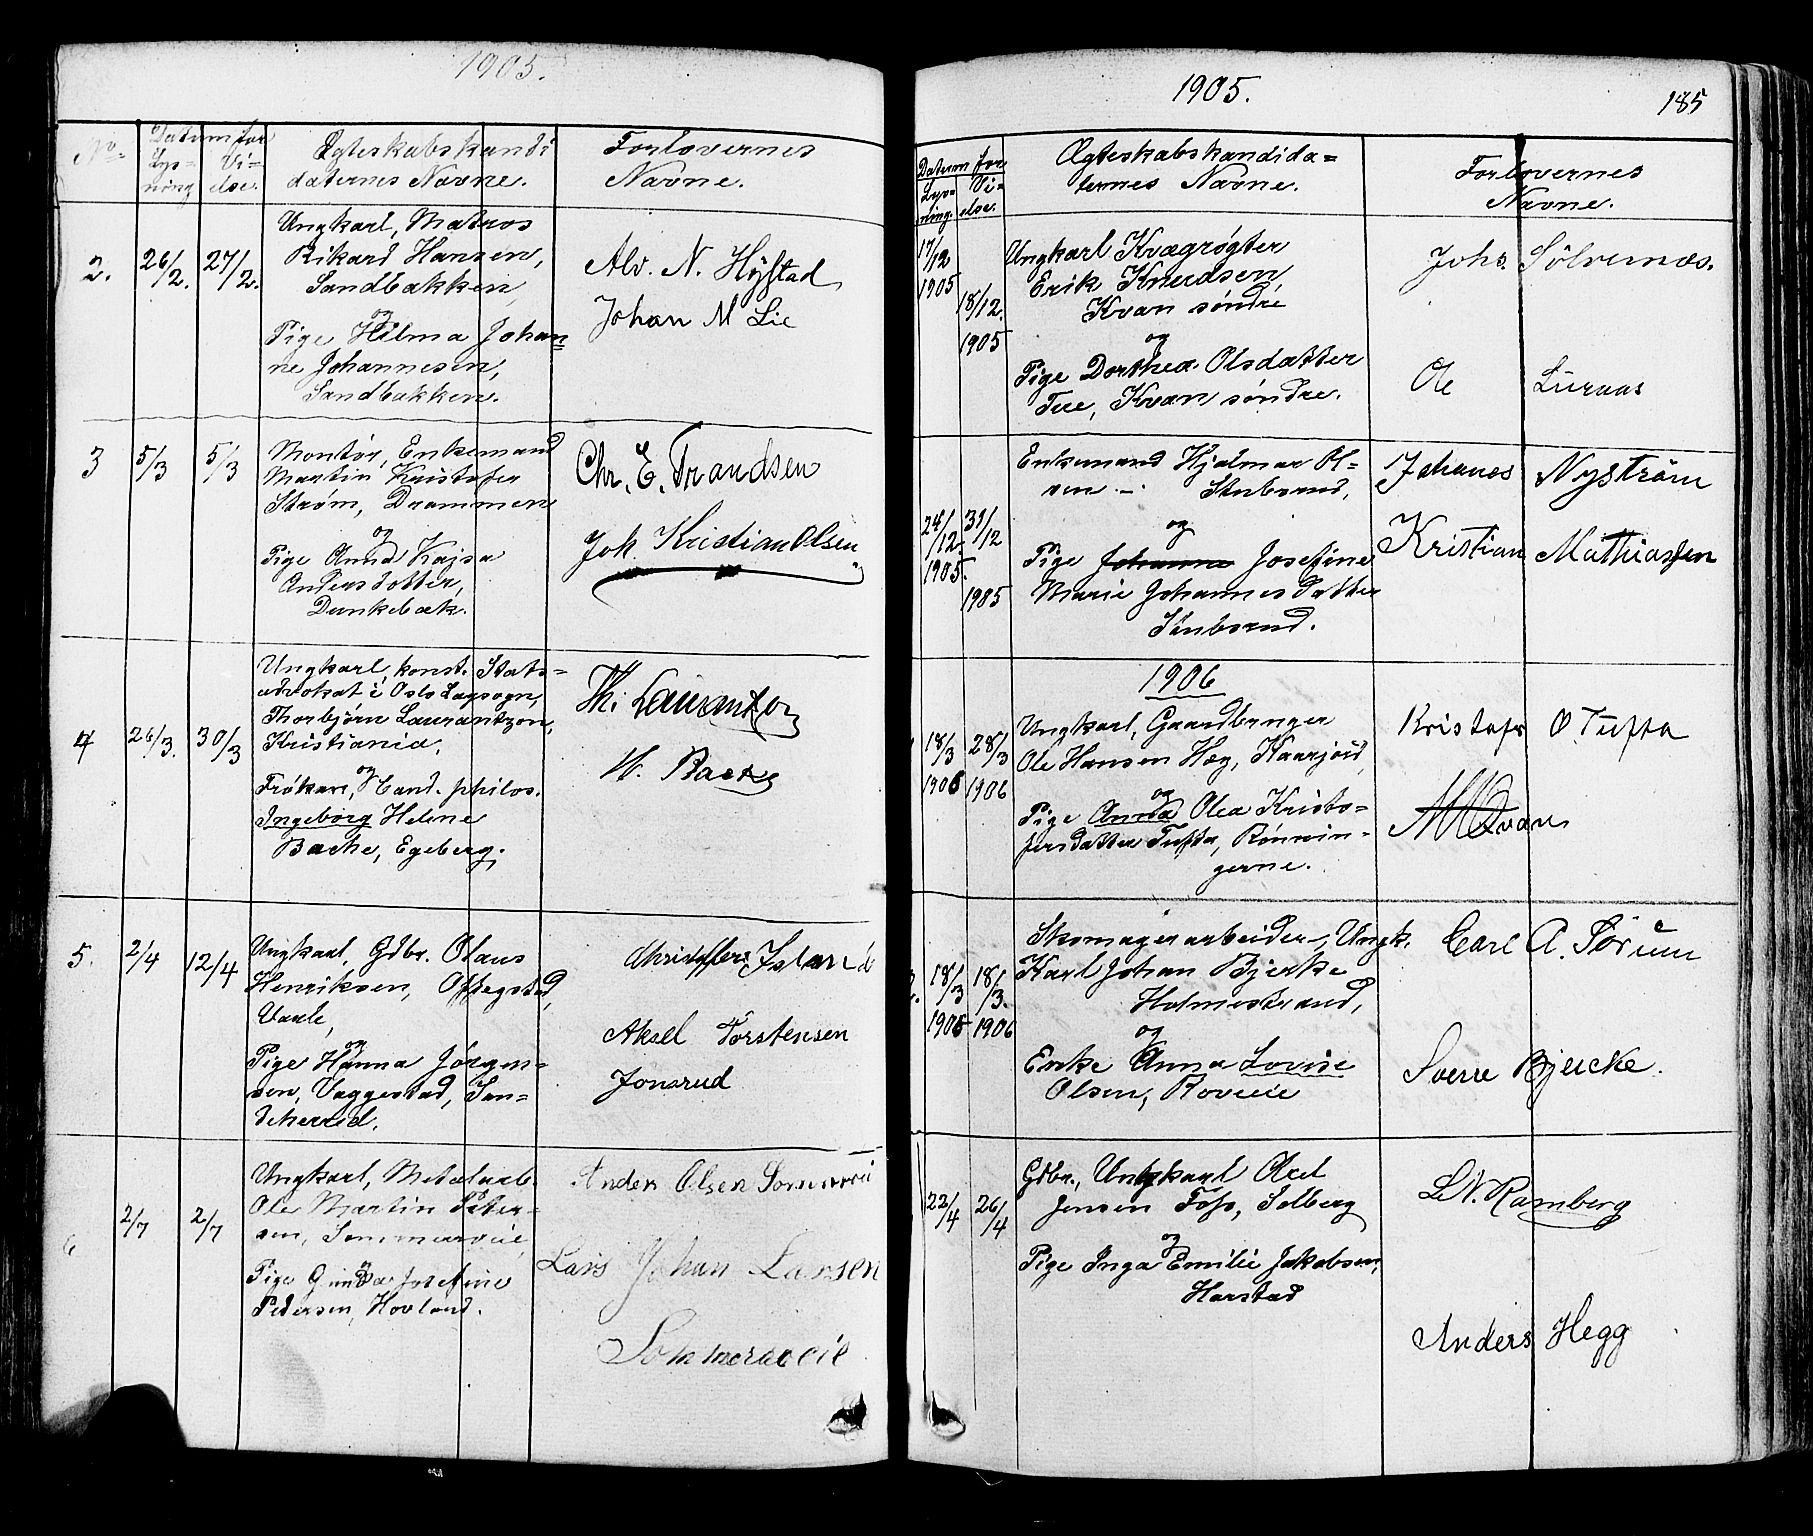 1905.
No.
Datum for
Lys-
ning
Vi-
else.
Ægteskabskandi
daternes Navne.
Forlovernes
Navne.
2.
26/2.
27/2.
Ungkarl, Matros
Rikard Hansen,
Sandbakken,
og
Pige Hilma Johan-
ne Johannesen,
Sandbakken.
Alv. N. Hystad
Johan M Lie
3
5/3
5/3
Montør, Enkemand
Martin Kristofer
Strøm, Drammen
og
Pige Anna Kajsa
Andersdotter,
Dunkebæk.
Chr. E. Trandsen
Joh. Kristian Olsen
4
26/3.
30/3
Ungkarl, konst. Stats-
advokat i Oslo Lagsogn,
Thorbjørn Laurantzon,
Kristiania,
og
Frøken, Cand. philos.
Ingeborg Helene
Backe, Egeberg.
Th. Laurantzon
Backe
5.
2/4
12/4
Ungkarl, Gdbr. Olaus
Henriksen,
Vaale,
og
Pige Hanna Jørgen-
sen, Vaggestad, San-
deherred.
Aksel Torstensen
Jonsrud
6
2/7
2/7
Ungkarl, Metalarb.
Ole Martin Peter-
sen, Sommerveie,
og
Pige Gunda Josefine
Pedersen, Hovland.
Anders Olsen
Lars Johan Larsen
1905.
185
Datum for
Lys-
ning.
Vi-
else.
Ægteskabskandida-
ternes Navne.
Forlovernes
Navne.
17/12
1905
18/12.
1905
Ungkarl Kvægrøgter
Erik Knudsen,
Kvan søndre
og
Pige Dorthea Olsdatter
Tue, Kvan søndre.
Johs. Sølvernes.
Ole Luraas
24/12.
1905.
31/12
1905
Enkemand Hjalmar Ol-
sen
og
Pige Johanna Josefine
Marie Johannesdatter
Johanes Nyström
Kristian Mathiassen
1906
18/3
1906
28/3
1906
Ungkarl, Gaardbruger
Ole Hansen Hæg, Kaarjord,
og
Pige Anna Olea Kristo-
fersdatter Tufta, Rønnin-
gerne.
Kristofr O. Tufta
18/3
1906
18/3.
1906
Skomagerarbeider, Ungk.
Karl Johan Bjerke
Holmestrand,
og
Enke Anna Lovise
Olsen, Roveie
Carl A. Sørum
Sverre Bjercke.
22/4
26/4
Gdbr., Ungkarl Axel
Jensen Foss, Solberg
og
Pige Inga Emilie Jakobsen,
Harstad
L.N. Ramberg
Anders Hegg